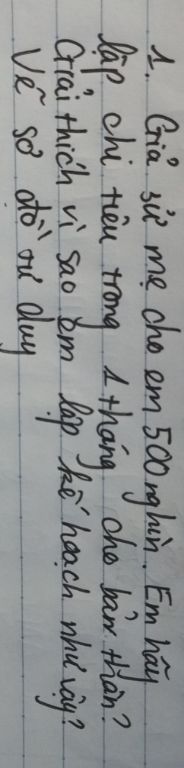 1. Giả sử mẹ cho em 500 nghìn. Em hãy
lập chi tiêu trong 1 tháng cho bản thân?
Giải thích vì sao em lập kế hoạch như vậy?
Vẽ sơ đồ tư duy